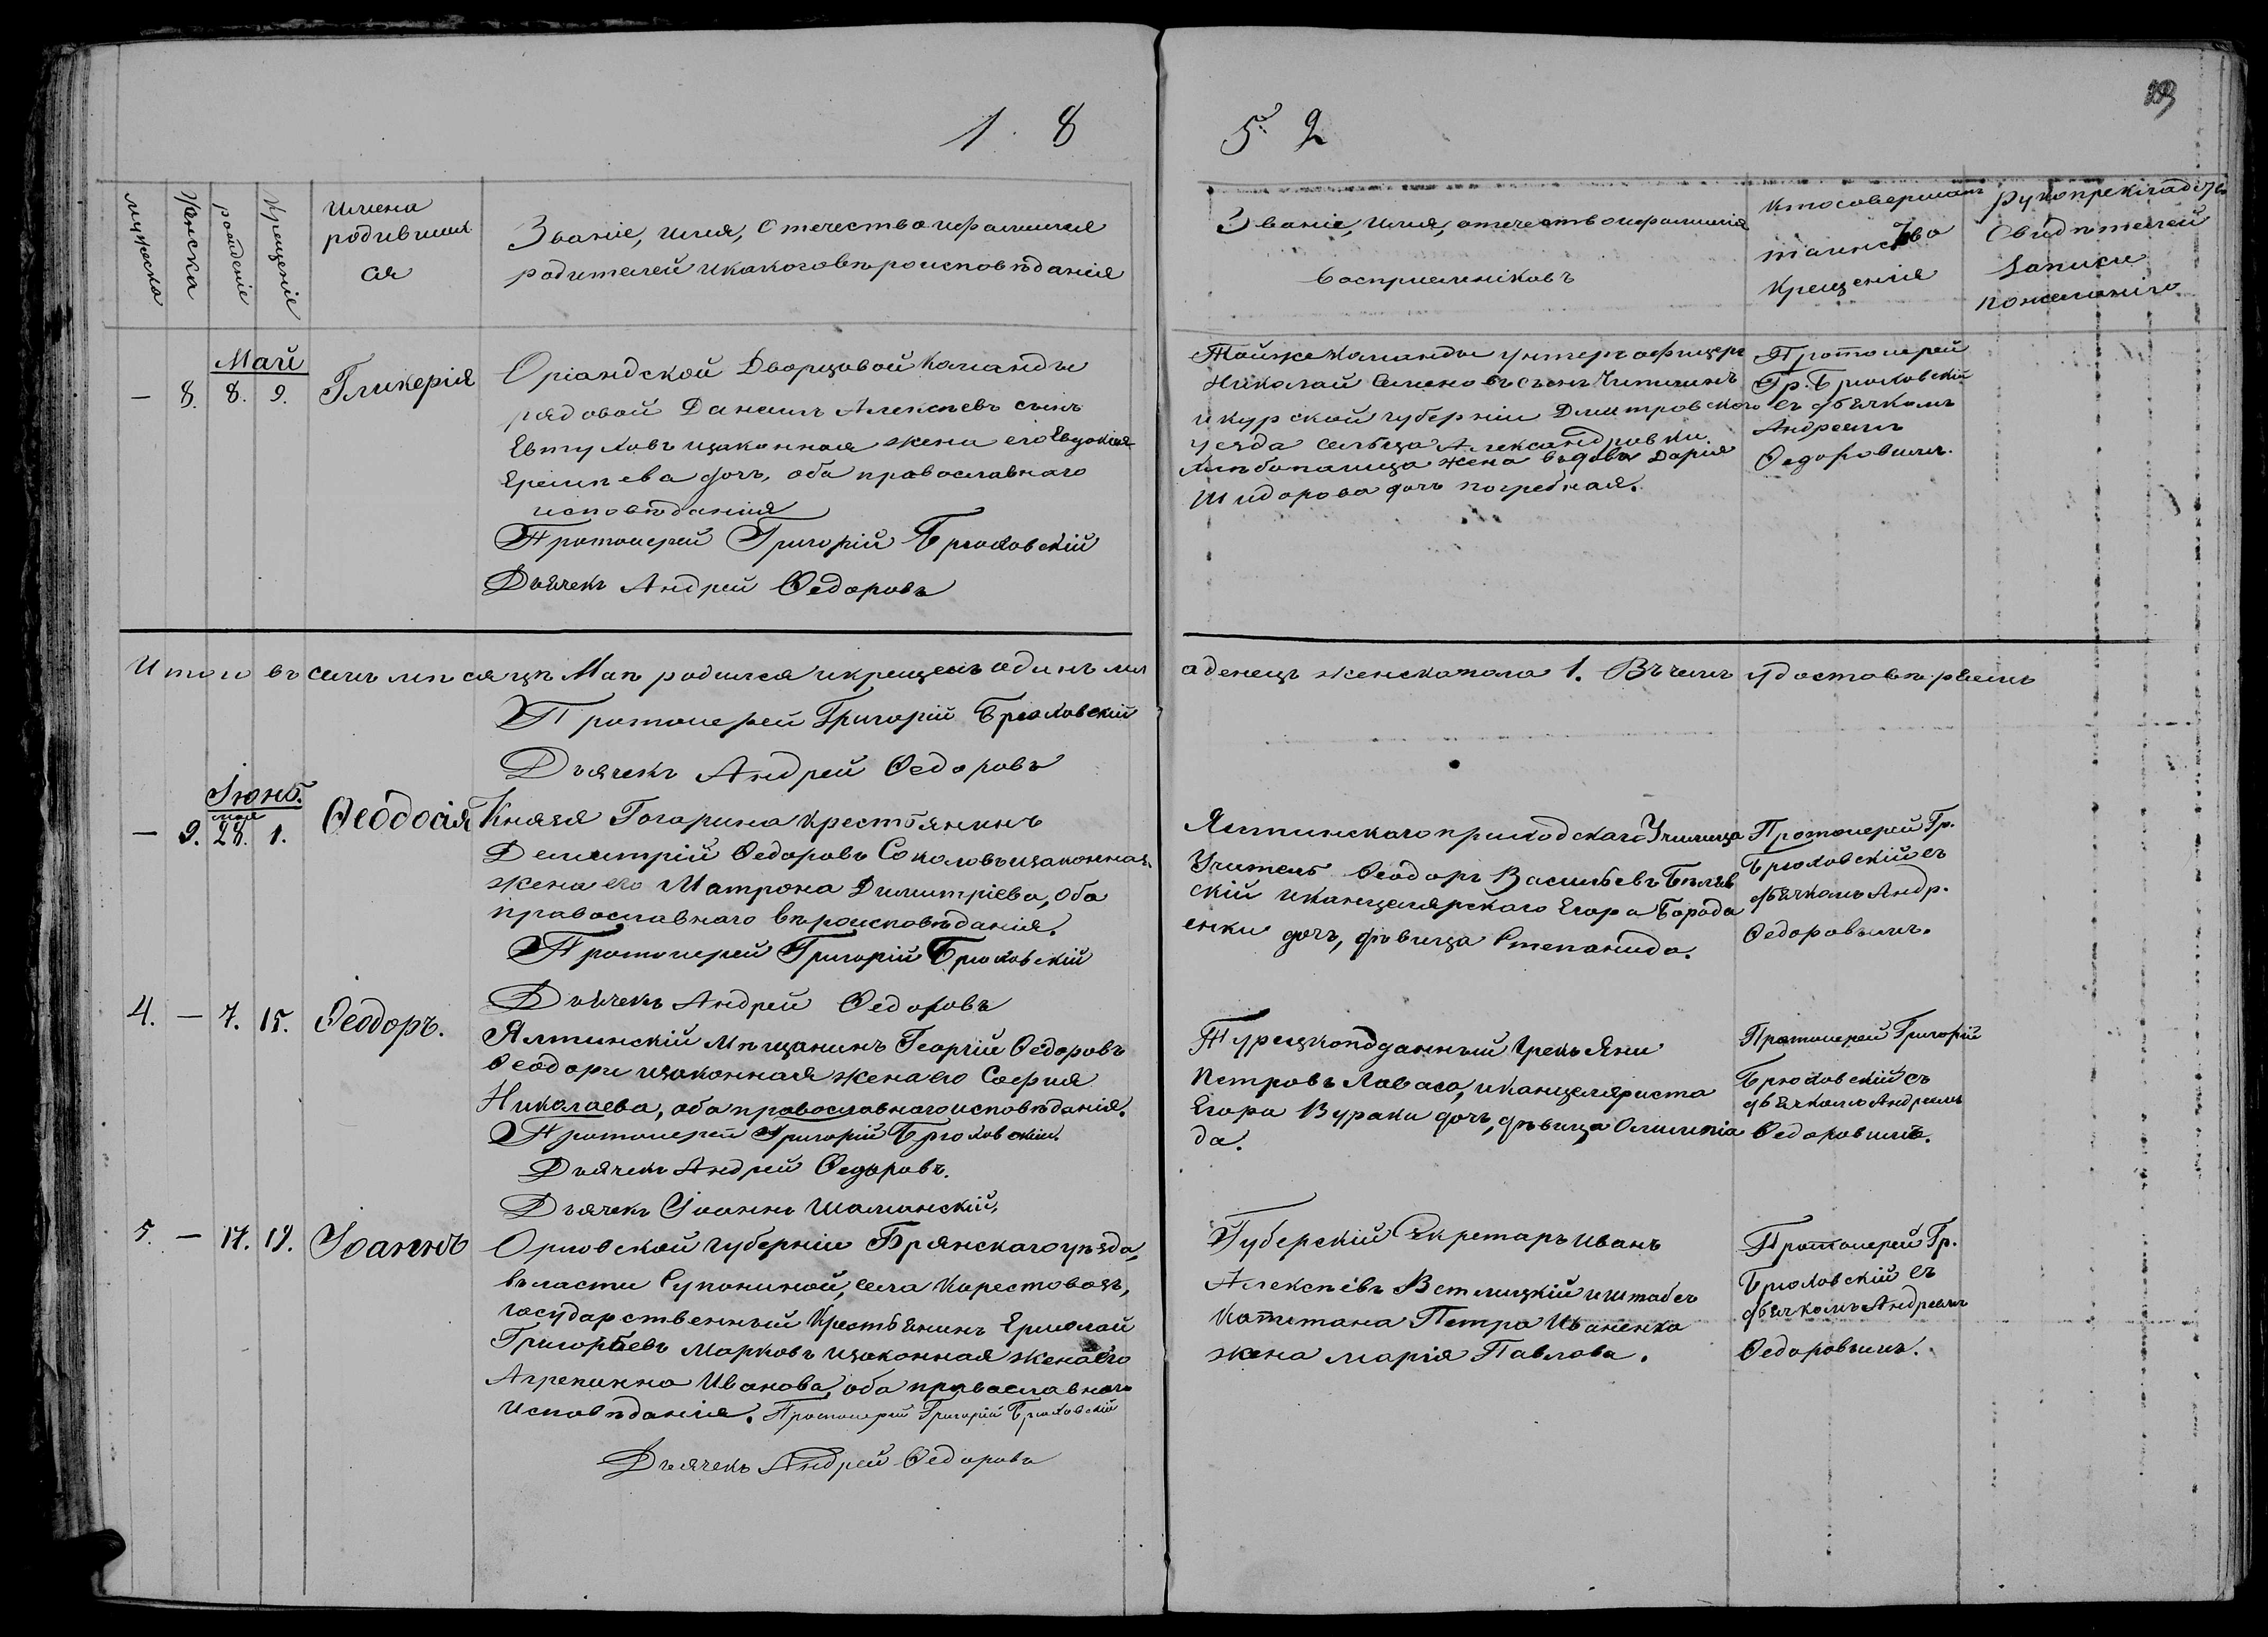 1. 8
5. 2
мужеска
женска
рожденіе
крещеніе
Имена
родивших
ся
Званіе, имя, отечество и фамилия
родителей и какого вѣроисповѣданія
Званіе, имя, отечество и фамилія
восприемниковъ
Кто совершалъ
таинство
Крещенія
Рукоприкладство
свидѣтелей
записи
по желанію
Май
— 8. 8. 9. Гликерія
Оріандской Дворцовой команды
рядовой Данаилъ Алексѣевъ сынъ
Евтуховъ и законная жена его Евдокія
Ереміева дочь, оба православнаго
исповѣданія
Протоиерей Григорій Брюховскій
Дьячекъ Андрей Ѳедоровъ
Тойже Команды унтеръ офицеръ
Николай Семеновъ сынъ
и курской губерніи Дмитровского
уезда сельца Александровки
жена вдова Дария
Сидорова дочь
Протоиерей
Гр. Брюховскій
съ дьячкомъ
Андреемъ
Ѳедоровымъ.
Итого въ семъ мѣсяцѣ Маѣ родился и крещенъ одинъ мл
аденецъ женска пола 1. Въ чемъ удостовѣряемъ
Протоиерей Григорій Брюховскій
Дьячекъ Андрей Ѳедоровъ
Іюнь.
мая
— 9. 28. 1. Ѳеодосія
Князя Гагарина крестьянинъ
Димитрій Ѳедоровъ Соколовъ и законная
жена его Матрона Димитріева, оба
православнаго вѣроисповѣданія.
Протоиерей Григорій Брюховскій
Дьячекъ Андрей Ѳедоровъ
Ялтинскаго приходскаго Училища
Учитель Ѳеодоръ Васильевъ Бѣляв
скій и канцелярскаго Егора Борода
енки дочь, дѣвица Степанида.
Протоиерей Гр.
Брюховскій съ
дьячкомъ Андр.
Ѳедоровымъ.
4. — 7. 15. Ѳеодоръ.
Ялтинскій мѣщанинъ Георгій Ѳедоровъ
Ѳеодори и законная жена его София
Николаева, оба православнаго исповѣданія.
Протоиерей Григорій Брюховскій.
Дьячекъ Андрей Ѳедоровъ.
Дьячекъ Іоаннъ Шаманскій.
Турецкоподданный Грекъ Яни
Петровъ Лаваса, и канцеляриста
Егора Вураки дочь, дѣвица Олимпіа
да.
Протоиерей Григорій
Брюховскій съ
дьячкомъ Андреемъ
Ѳедоровымъ.
5. — 17. 19. Іоаннъ
Орловской губерніи Брянскаго уѣзда,
въласти Супониной, села
государственный Крестьянинъ Ермолай
Григорьевъ Марковъ и законная жена его
Агрепинна Иванова, оба православнаго
исповѣданія. Протоиерей Григорій Брюховскій
Дьячекъ Андрей Ѳедоровъ
Губерскій Секретарь Иванъ
Алексѣевъ и штабсъ
Капитана Петра Иваненка
жена Марія Павлова.
Протоиерей Гр.
Брюховскій съ
дьячкомъ Андреемъ
Ѳедоровымъ.